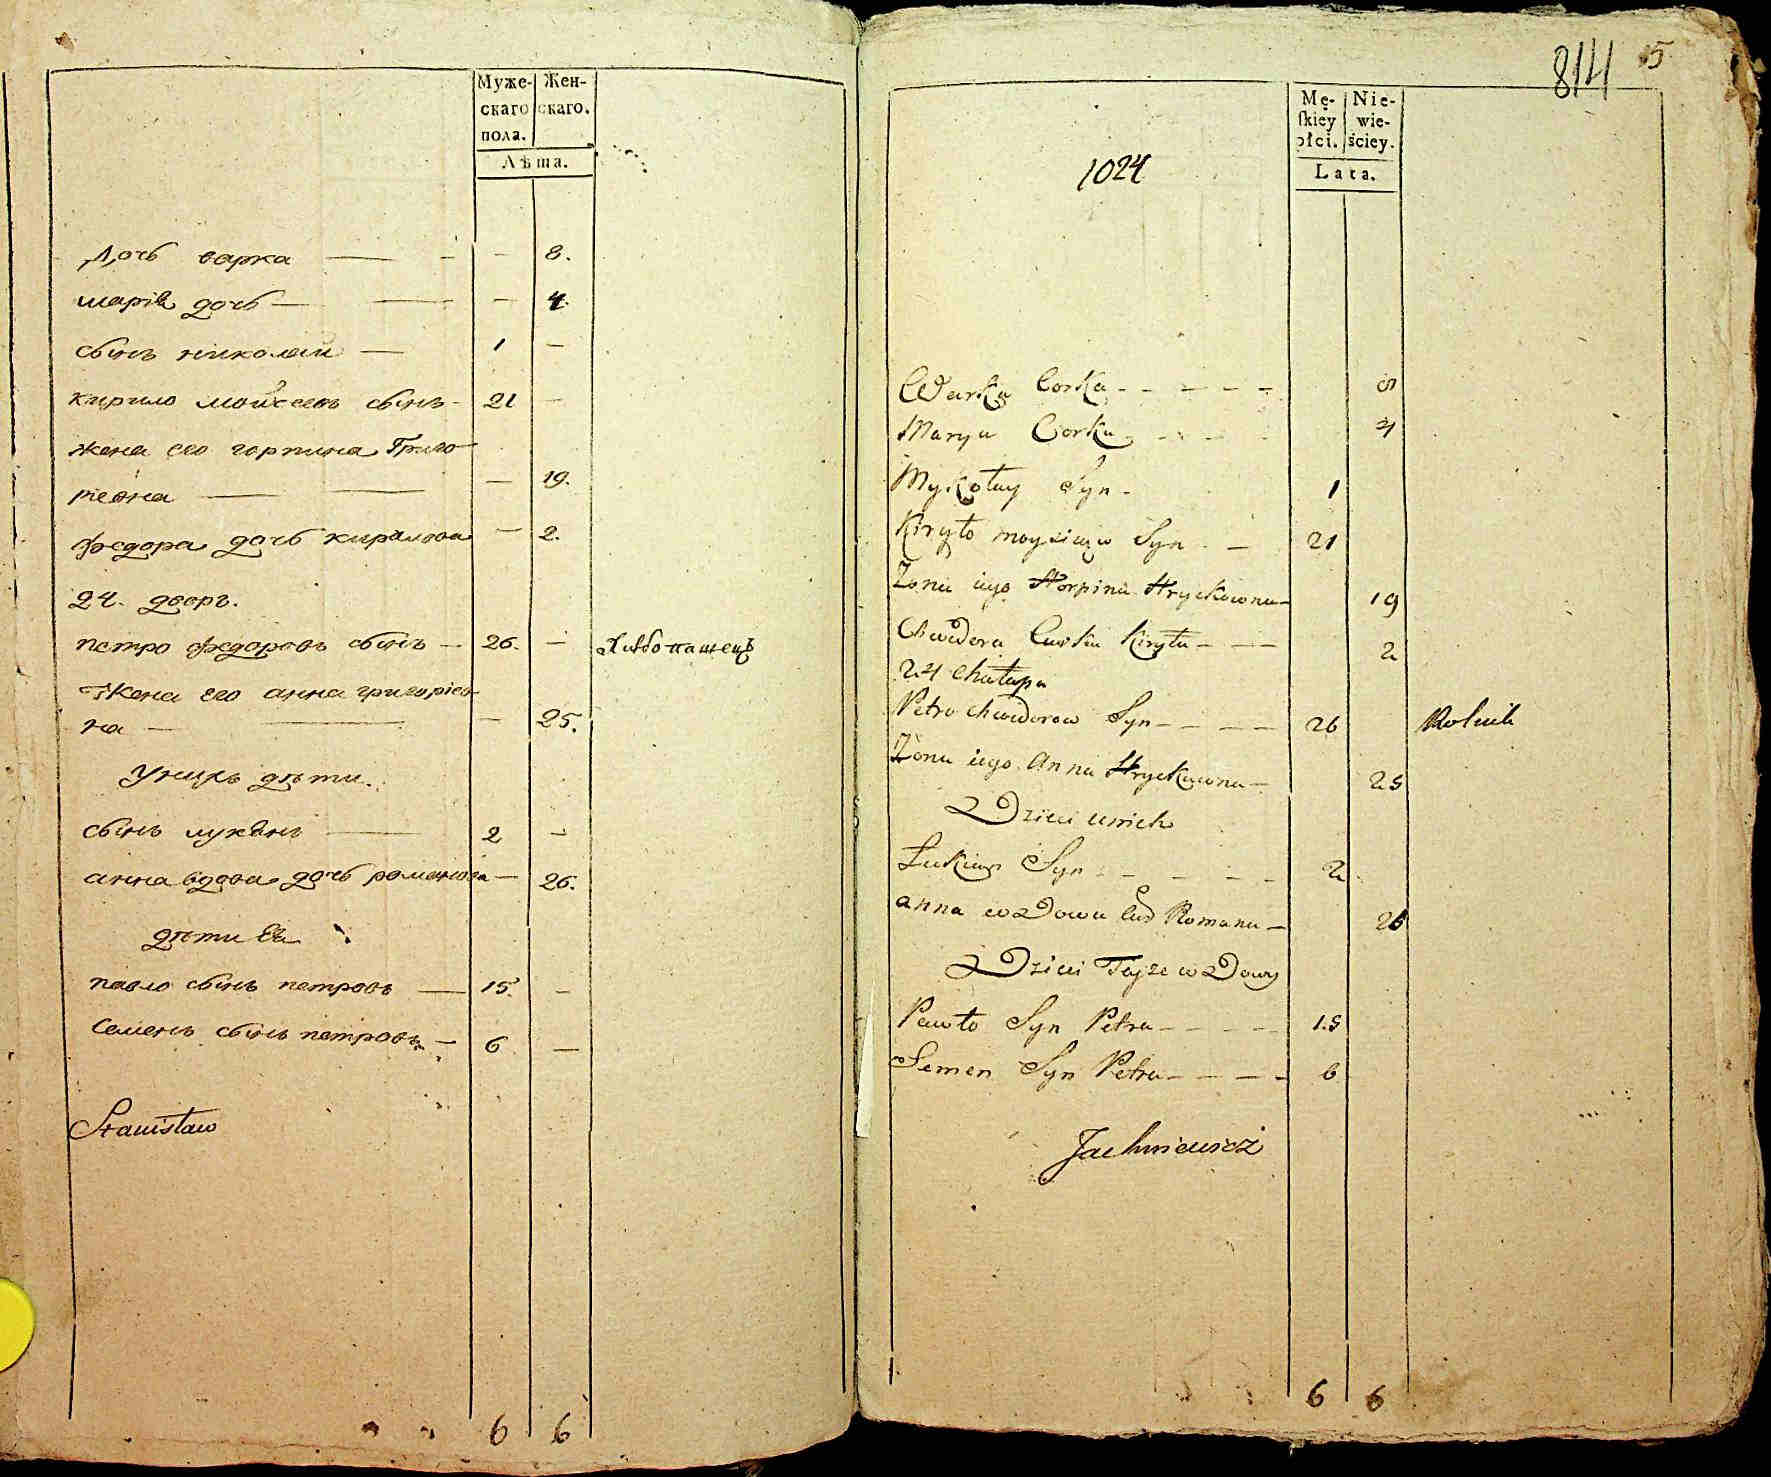 Муже-
скаго
пола.
Жен-
скаго.
Лѣта.
Дочь варка — — — 8.
марія дочь — — — 4.
сынъ николай — 1 —
кирило мойсеевъ сынъ - 21 —
жена его горпина Григо
риевна — — — 19.
федора дочь кирилова — 2.
24. дворъ.
петро федоровъ сынъ — 26. — Хлѣбопашецъ
Жена его анна григоріев
на — — — 25.
У нихъ дѣти.
сынъ лукянъ — 2 —
анна вдова дочь романова — 26.
дѣти ея
павло сынъ петровъ — 15. —
Семенъ сынъ петровъ — 6 —
Stanisław
6 6
814 15
1024
Mę-
skiey
płci.
Nie-
wie-
ściey.
Lata.
Warka Corka - - - - - 8
Marya Corka - - - - 4
Mykołay Syn - 1
Kiryło moysiiow Syn - - 21
Żona iego Horpina Hryckowna - 19
Chwedora Curka Kiryła - - - 2
24 Chałupa
Petro chwedorow Syn - - - - 26 Rolnik
Żona iego Anna Hryckowna - 25
Dzieci unich
Łukian Syn - - - - - 2
anna wdowa Cud Romana - 26
Dzieci Tejże wdowy
Pawło Syn Petra - - - - 15
Semen Syn Petra - - - - 6
Jachniewicz
6 6